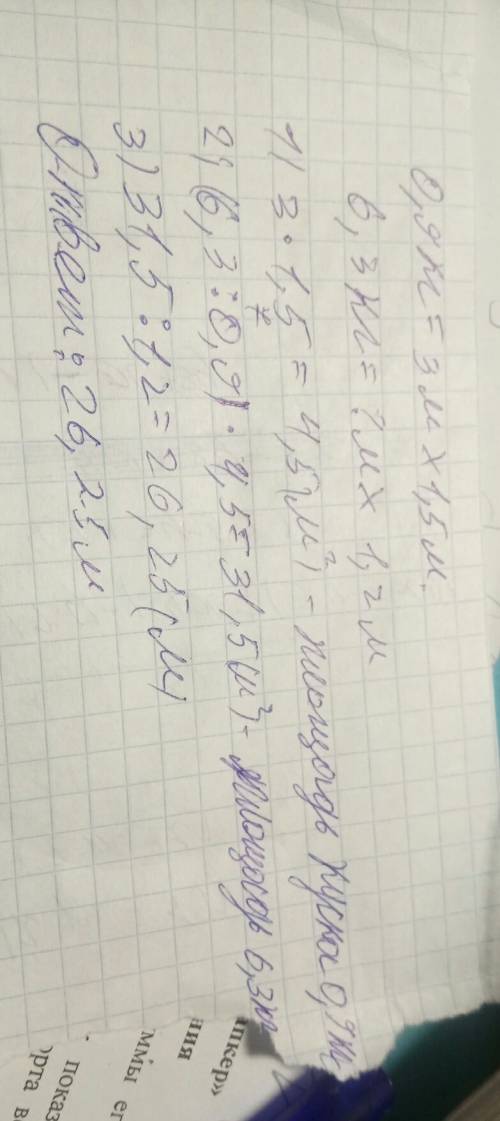 0,9 кг = 3 м х 1,5 м.
6,3 кг = ? м х 1,2 м
1) 3 · 1,5 = 4,5 (м²) - площадь куска 0,9 кг
2) (6,3 : 0,9) · 4,5 = 31,5 (м²) - площадь 6,3 кг
3) 31,5 : 1,2 = 26,25 (м)
Ответ: 26,25 м
нкер»
ния
ммы ег
показ
орта в